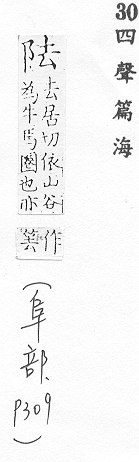 30四聲篇海
阹
去居切依山谷
為牛馬圈也亦
作𥬔
(阜部.
p309)